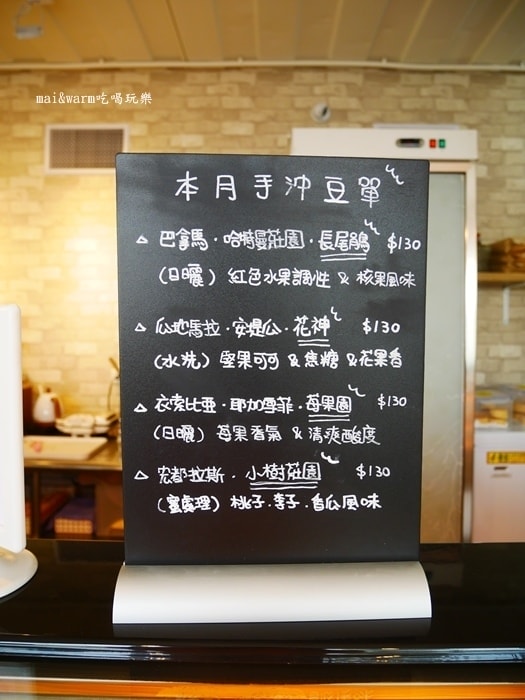 mai&warm吃喝玩樂
本月手沖豆單
△ 巴拿馬·哈特曼莊園·長尾鵑 $130
(日曬) 紅色水果調性 & 核果風味
△ 瓜地馬拉·安提瓜·花神 $130
(水洗) 堅果可可 & 焦糖 & 花果香
△ 衣索比亞·耶加雪菲·莓果園 $130
(日曬) 莓果香氣 & 清爽酸度
△ 宏都拉斯·小樹莊園 $130
(蜜處理) 桃子·李子·香瓜風味